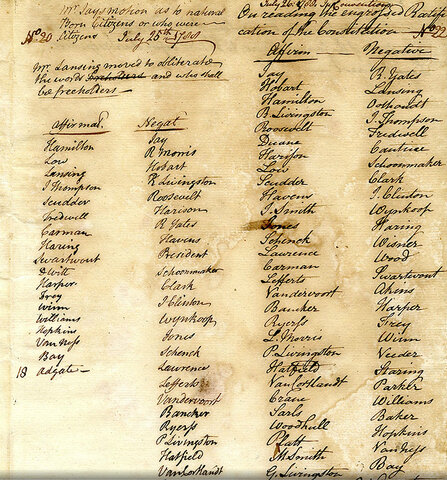 Mr. Jays motion as to national
Born Citizens or who were
No 20 Citizens July 25th 1788
Mr. Lansing moved to obliterate
the words freeholders and who shall
be freeholders —
Affirmad. Negat
Hamilton Jay
Low R Morris
Lansing Hobart
J Thompson R Livingston
Scudder Roosevelt
Tredwell Harison
Carman R Yates
Haring Havens
Swartwout President
DWitt Schoonmaker
Harper Clark
Frey J Clinton
Winn Wynkoop
Williams Jones
Hopkins Schenck
Van Ness Lawrence
Bay Lefferts
18 Adgate — Vandervoort
Bancker
Ryerss
P Livingston
Hatfield
VanCortlandt
July 26. 1788. In Convention
On reading the engrossed Ratifi
cation of the Constitution No
Affirm Negative
Jay R. Yates
Hobart Lansing
Hamilton Oothoudt
R. Livingston J. Thompson
Roosevelt Tredwell
Duane Cantine
Harison Schoonmaker
Low Clark
Scudder J. Clinton
Havens Wynkoop
J. Smith Haring
Jones Wisner
Schenck Wood
Lawrence Swartwout
Carman Akins
Lefferts Harper
Vandervoort Frey
Bancker Winn
Ryerss Veeder
L. Morris Staring
P. Livingston Parker
Hatfield Williams
VanCortlandt Baker
Crane Hopkins
Sarls VanNess
Woodhull Bay
Platt
M Smith
G. Livingston